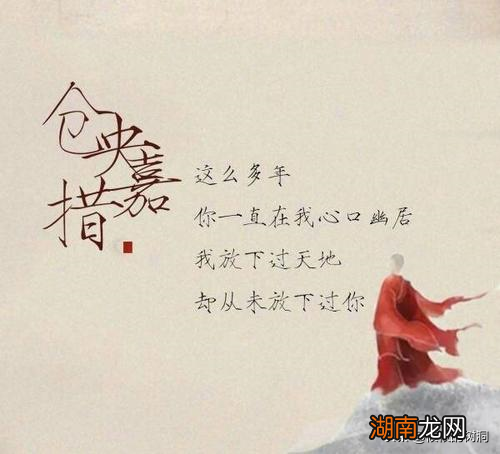 仓央嘉措
这么多年
你一直在我心口幽居
我放下过天地
却从未放下过你
湖南龙网